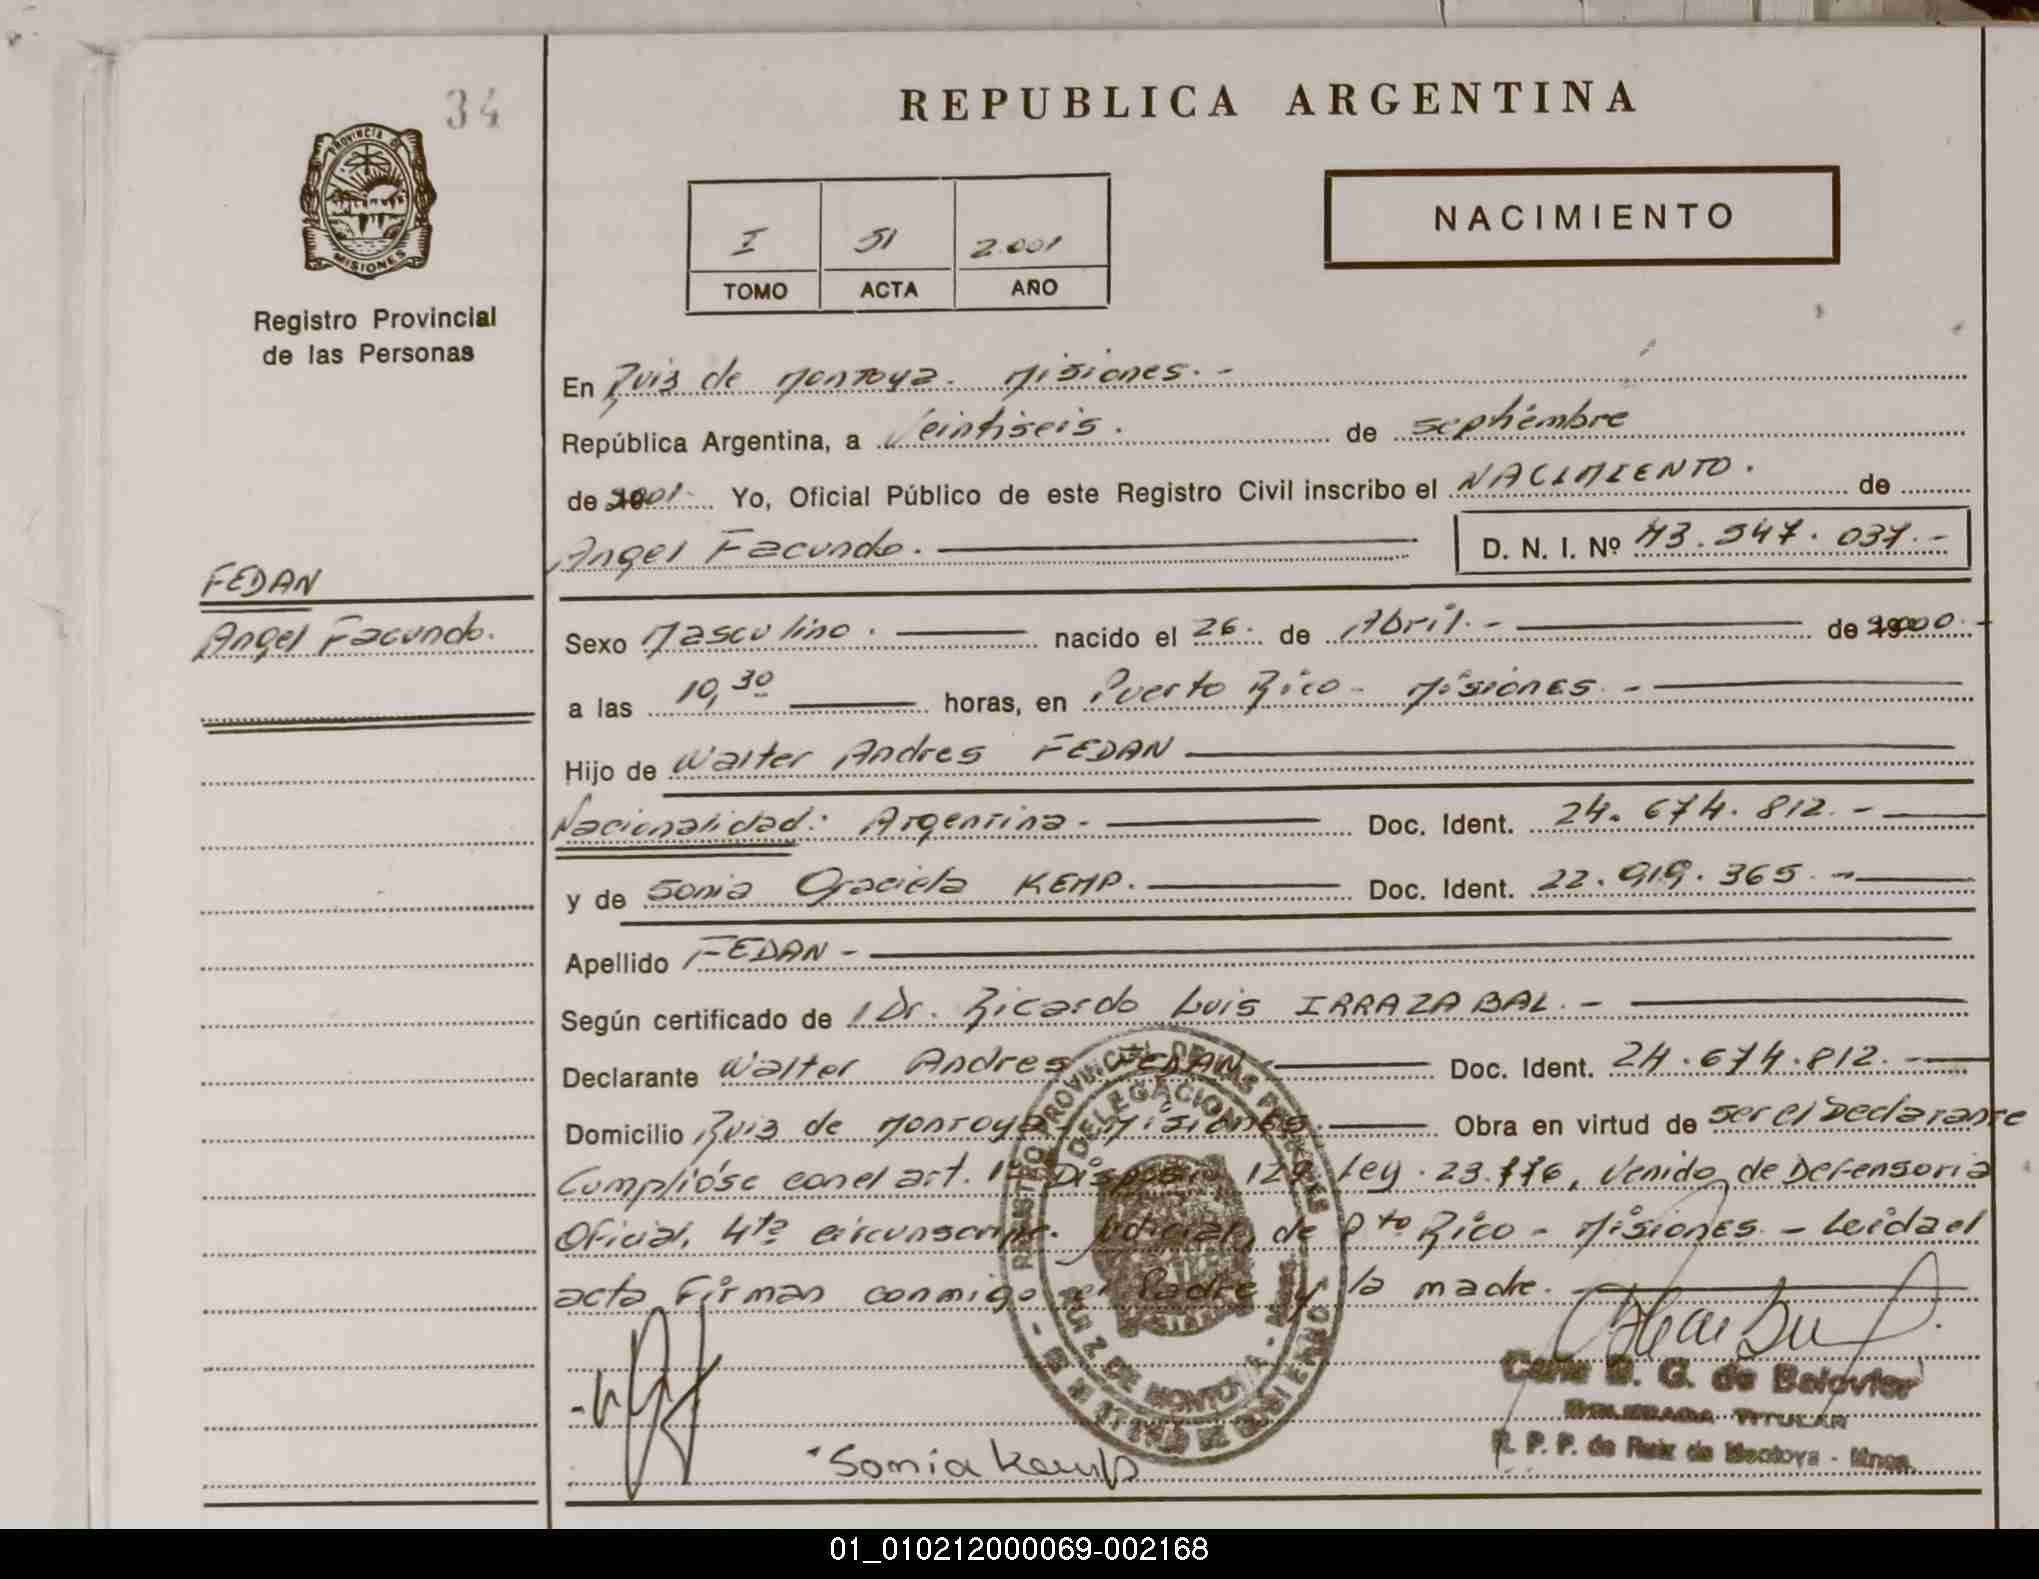 34
REPUBLICA ARGENTINA
PROVINCIA DE
MISIONES
Registro Provincial
de las Personas
I 51 2.001
TOMO ACTA AÑO
NACIMIENTO
En Ruiz de Montoya. Misiones.-
República Argentina, a Veintiseis. de septiembre
de 2001. Yo, Oficial Público de este Registro Civil inscribo el NACIMIENTO. de
Angel Facundo. D. N. I. Nº 43.547.037.-
FEDAN
Angel Facundo.
Sexo Masculino. nacido el 26. de Abril.- de 2000.-
a las 10,30 horas, en Puerto Rico - Misiones.-
Hijo de Walter Andres FEDAN
Nacionalidad: Argentina.- Doc. Ident. 24.674.812.-
y de Sonia Graciela KEMP. Doc. Ident. 22.919.365.-
Apellido FEDAN-
Según certificado de Dr. Ricardo Luis IRRAZABAL.-
Declarante Walter Andres FEDAN- Doc. Ident. 24.674.812.-
Domicilio Ruiz de Montoya Misiones. Obra en virtud de ser el Declarante
Cumplióse con el art. 1º Disposic. 129, Ley. 23.776, Venido de Defensoria
Oficial, 4ta circunscrip. judicial, de Pto Rico - Misiones - Leida el
acta Firman conmigo el Padre y la madre.
REGISTRO PROVINCIAL DE LAS PERSONAS
DELEGACION
RUIZ DE MONTOYA - Mnes.
Sonia Kemp
G. de
DELEGADA TITULAR
R. P. P. de Ruiz de Montoya - Mnes.
01_010212000069-002168